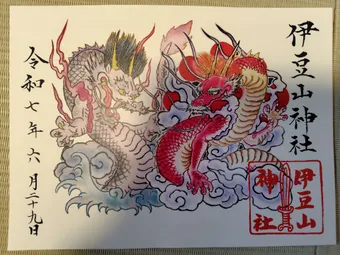 伊豆山神社
令和七年六月二十九日
伊豆山
神社